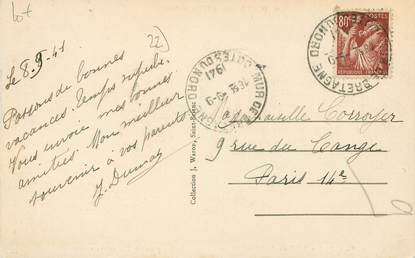 lot
22)
Le 8.9.41
Passons de bonnes
vacances. Temps superbe.
Vous envoie mes bonnes
amitiés. Mon meilleur
souvenir à vos parents
J.
Collection J. Waron, Saint-Brieuc
MUR DE BRETAGNE
COTES DU NORD
1941
80c
POSTES
REPUBLIQUE FRANÇAISE
BRETAGNE
DU NORD
Mademoiselle Corroyer
9 rue du Cange
Paris 14e